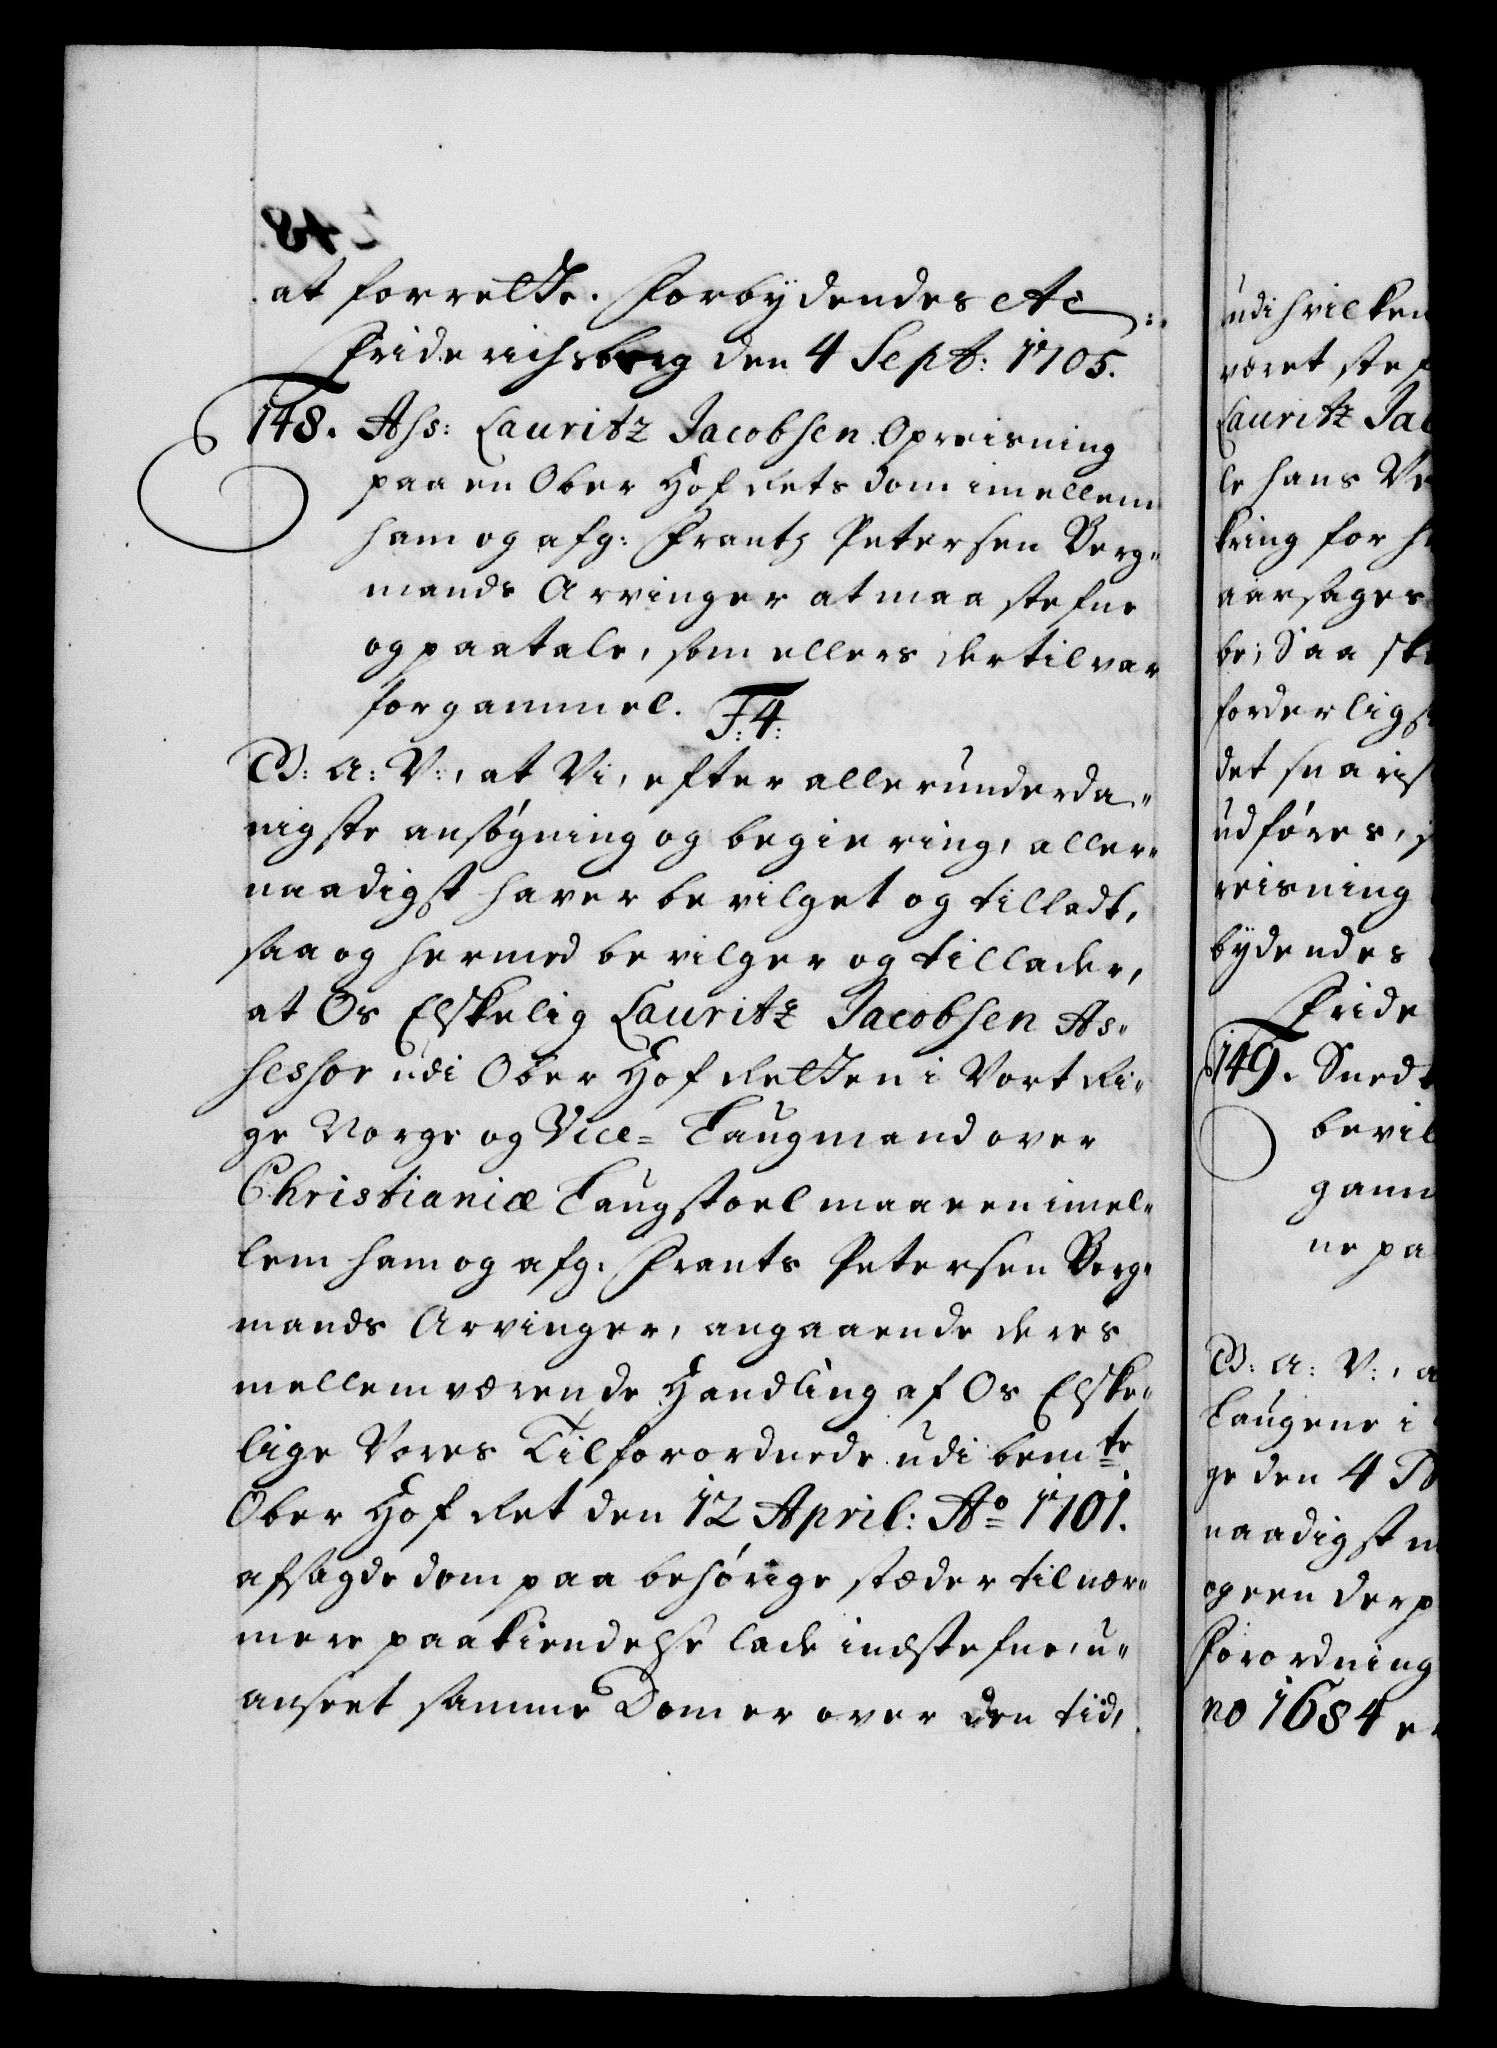 at forrette. Forbydendes etc
Friderichsberg den 4 Sept: 1705.
148. Ass: Lauritz Jacobsen Opreisning
paa en Ober Hof Rets dom imellem
ham og afg: Frantz Petersen Berg-
mands Arvinger at maa stefne
og paatale, som ellers dertil var
for gammel. F:4:
C5: A: V:, at Vi, efter allerunderda-
nigste ansøgning og begiering, aller-
naadigst haver bevilget og tilladt,
saa og hermed bevilger og tillader,
at Os Elskelig Lauritz Jacobsen As-
sessor udi Ober Hof Retten i Vort Ri-
ge Norge og Vice- Laugmand over
Christianiæ Laugstoel maa een imel-
lem ham og afg: Frants Petersen Berg-
mands Arvinger, angaaende deres
mellemværende Handling af Os Elske-
lige Vores Tilforordnede udi bemte
Ober Hof Ret den 12 April: Ao 1701.
afsagde dom paa behørige stæder til nær-
mere paakiendelse lade indstefne, u-
anseet samme Dom er over den tid,
udi hvilken
været stef
Lauritz Jac
le hans Ve
kring for h
aarsages
be; Saa ska
forderligst
det snaris
udføres, s
reisning
bydendes
Fride
149. Snedk
bevil
gam
ne pa
C5: A: V:, a
Laugene i
ge den 4
naadigst
og een derp
Forordning
no 1684 e